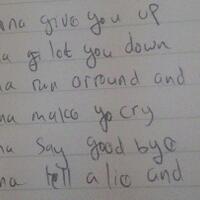 nna give you up
na let you down
na run orround and
na make yo cry
na say good bye
na tell a lie and